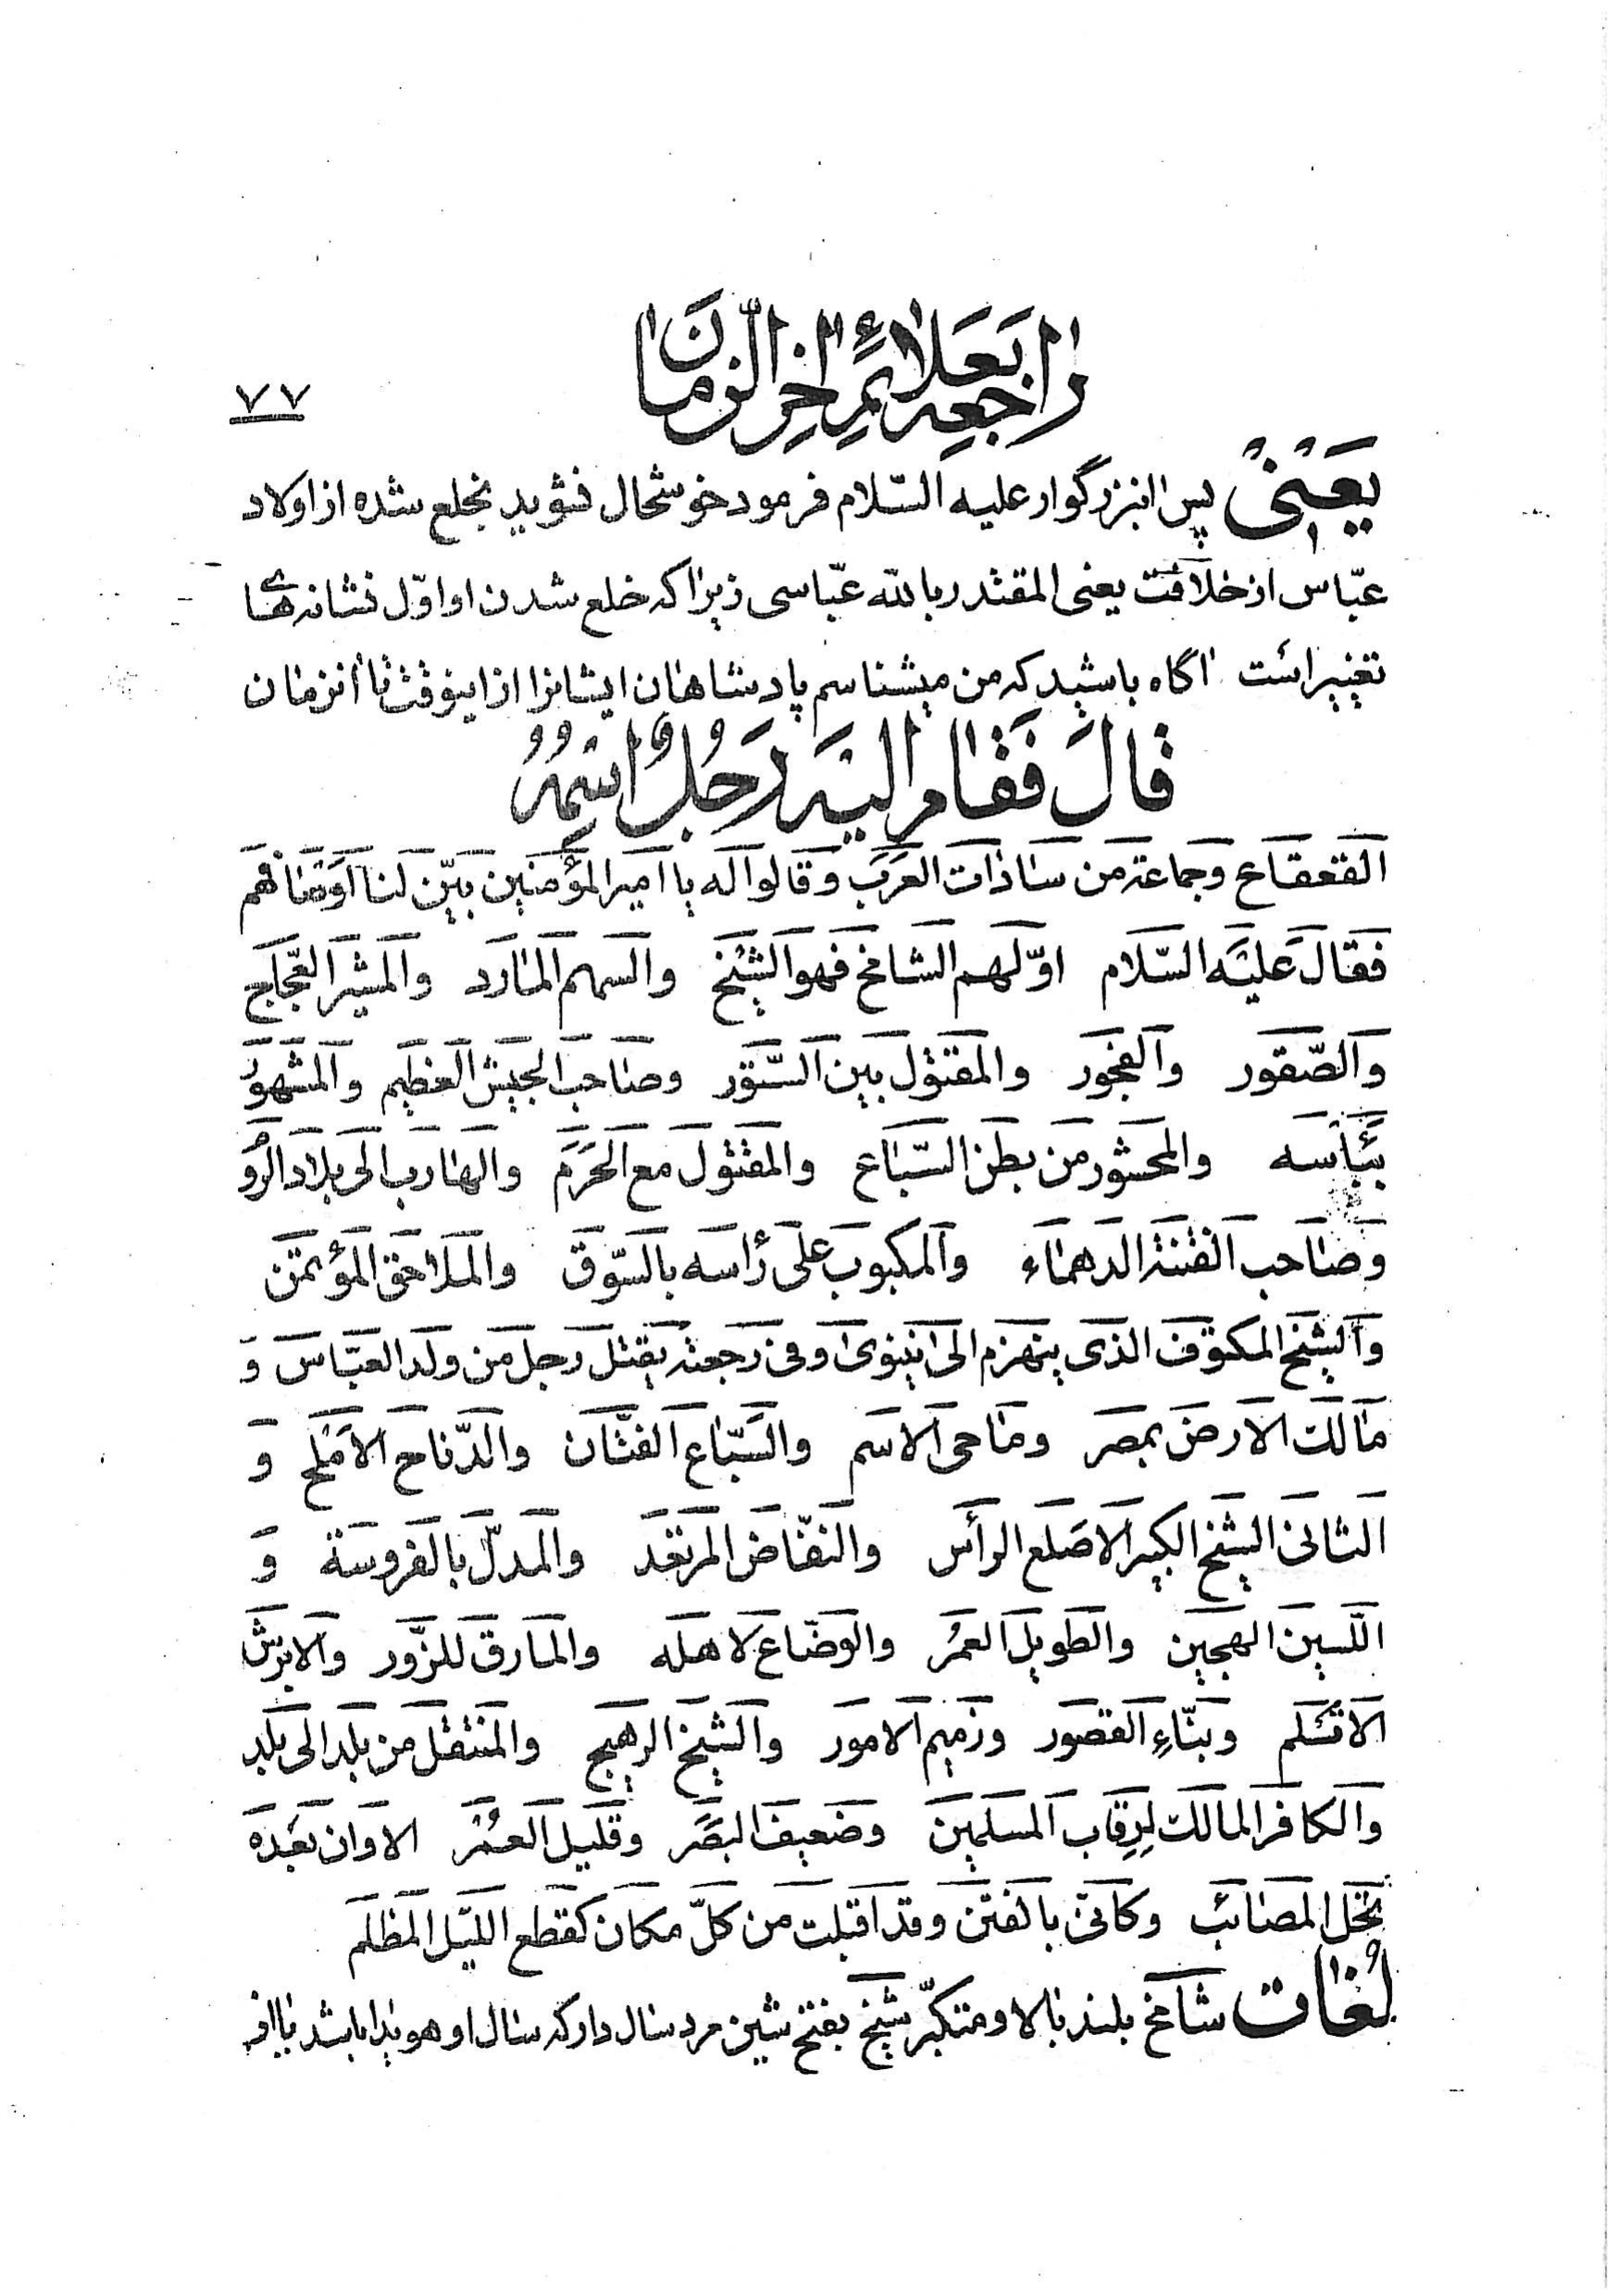 راجعه بعلائم اخر الزمان
۷۷
یعنی پس انبزرگوار علیه السّلام فرمود خوشحال نشوید بخلع شده از اولاد
عبّاس از خلافت یعنی المقتدر بالله عبّاسی زیرا که خلع شدن او اوّل نشانه های
تغییر است اگاه باشید که من میشناسم پادشاهان ایشانرا از اینوقت تا انزمان
قال فَقام الیه رَجُلٌ اسمُهُ
القعقاع وجماعة من سادات العرب وقالوا له یا امیر المؤمنین بیّن لنا اوصافهم
فقال علیه السّلام اوّلهم الشامخ فهو الشیخ والسهم المارد والمثیر العجّاج
والصّقور والفجور والمقتول بین السّتور وصاحب الجیش العظیم والمشهور
ببأسه والمحشور من بطن السّباع والمقتول مع الحرم والهارب الی بلاد الرو
وصاحب الفتنة الدهماء والمکبوب علی رأسه بالسّوق والملاحق المؤتمن
والشیخ المکتوف الذی ینهزم الی نینوی وفی رجعته یقتل رجل من ولد العبّاس و
مالک الارض بمصر وماحی الاسم والسّباع الفتّان والدّناح الاملح و
الثانی الشیخ الکبیر الاصلع الرأس والنفّاض المرتعد والمدلّ بالفروسة و
اللّسین الهجین والطویل العمر والوضّاع لاهله والمارق للزّور والابرش
الاثلم وبنّاءِ القصور ورمیم الامور والشیخ الرهیج والمنتقل من بلد الی بلد
والکافر المالک لِرِقاب المسلمین وضعیف البصَر وقلیل العمُر الا وان بَعده
تحل المصائب وکانی بالفتن وقد اقبلت من کلّ مکان کقطع اللیل المظلم
لُغات شامخ بلند بالا ومتکبّر شیخ بفتح شین مرد سال دار که سال او هویدا باشد یا از